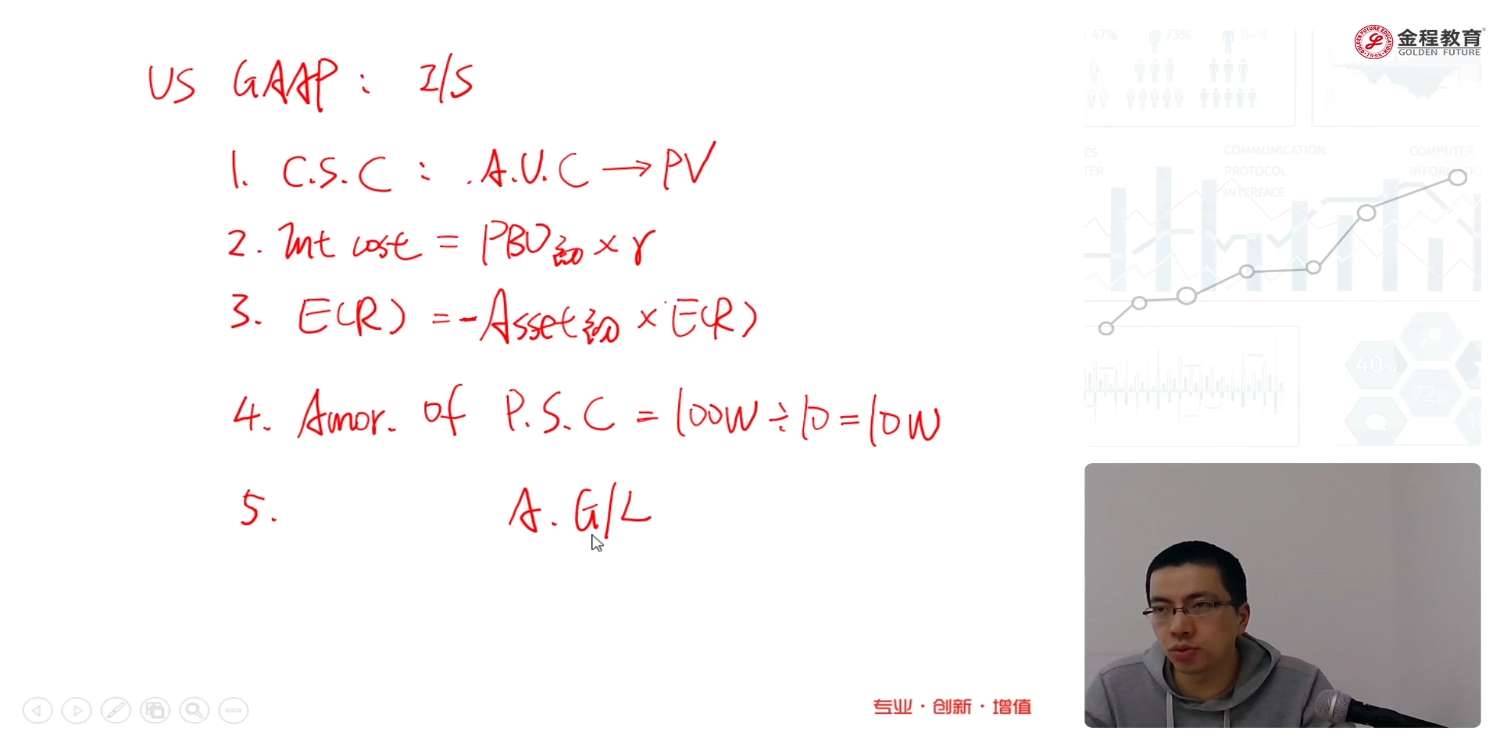 US GAAP: I/S
1. C.S.C: A.U.C → PV
2. Int cost = PBO初 × r
3. E(R) = -Asset初 × E(R)
4. Amor. of P.S.C = 100W ÷ 10 = 10W
5. A. G/L
金程教育
GOLDEN FUTURE
47%
73%
COMMUNICATION
PROTOCOL
INTERFACE
COMPUTER
40%
专业·创新·增值